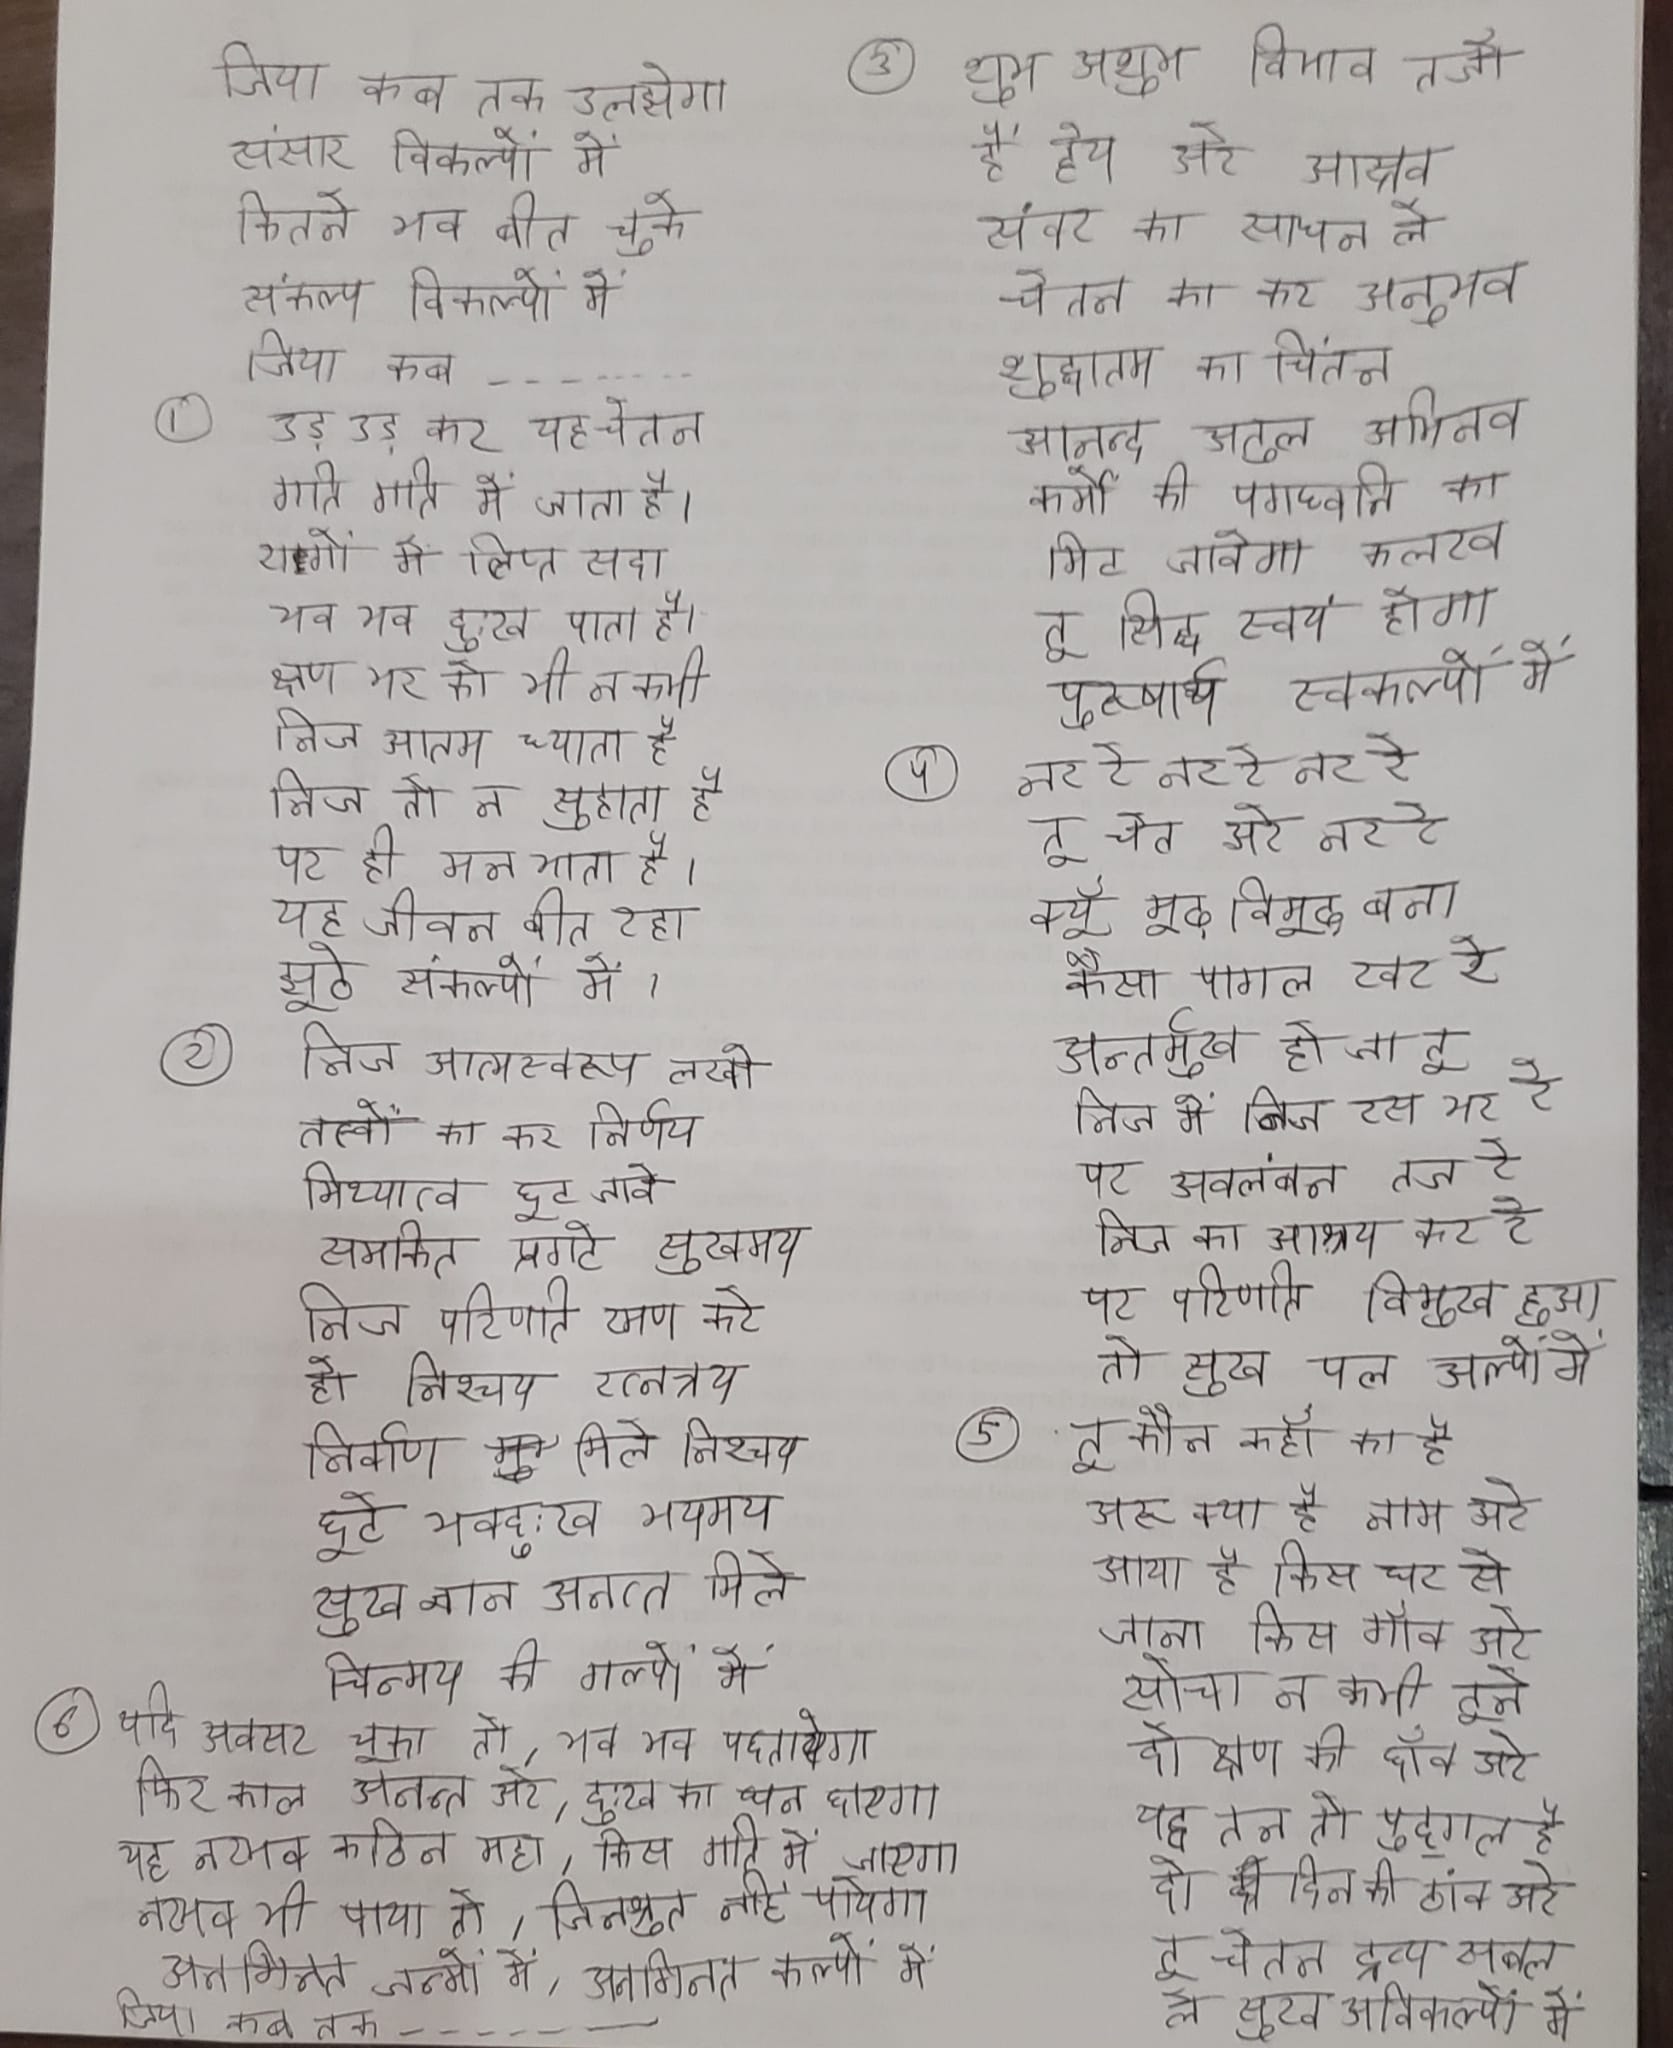 जिया कब तक उलझेगा
संसार विकल्पों में
कितने भव बीत चुके
संकल्प विकल्पों में
जिया कब --------
① उड़ उड़ कर यह चेतन
गति गति में जाता है।
रागों में लिप्त सदा
भव भव दुःख पाता है।
क्षण भर को भी न कभी
निज आतम ध्याता है
निज तो न सुहाता है
पर ही मन भाता है।
यह जीवन बीत रहा
झूठे संकल्पों में।
② निज आत्मस्वरूप लखो
तत्वों का कर निर्णय
मिथ्यात्व छूट जावे
समकित प्रगटे सुखमय
निज परिणति रमण करे
हो निश्चय रत्नत्रय
निर्वाण मिले निश्चय
छूटे भवदुःख भयमय
सुख ज्ञान अनन्त मिले
चिन्मय की गल्पों में
③ शुभ अशुभ विभाव तजो
हैं हेय अरे आस्रव
संवर का साधन ले
चेतन का कर अनुभव
शुद्धातम का चिंतन
आनन्द अतुल अभिनव
कर्मों की पगध्वनि का
मिट जावेगा कलरव
तू सिद्ध स्वयं होगा
पुरुषार्थ स्वकल्पों में
④ नर रे नर रे नर रे
तू चेत अरे नर रे
क्यूँ मूढ़ विमूढ़ बना
कैसा पागल खर रे
अन्तर्मुख हो जा तू
निज में निज रस भर रे
पर अवलंबन तज रे
निज का आश्रय कर रे
पर परिणति विमुख हुआ
तो सुख पल अल्पों में
⑤ तू कौन कहाँ का है
अरू क्या है नाम अरे
आया है किस घर से
जाना किस गाँव अरे
सोचा न कभी तूने
दो क्षण की छाँव अरे
यह तन तो पुद्गल है
दो दिन की ठांव अरे
तू चेतन द्रव्य सबल
ले सुख अविकल्पों में
⑥ यदि अवसर चूका तो, भव भव पछतायेगा
फिर काल अनन्त अरे, दुःख का घन छाएगा
यह नरभव कठिन महा, किस गति में जाएगा
नरभव भी पाया तो, जिनश्रुत नहिं पायेगा
अनगिनत जन्मों में, अनगिनत कल्पों में
जिया कब तक -------